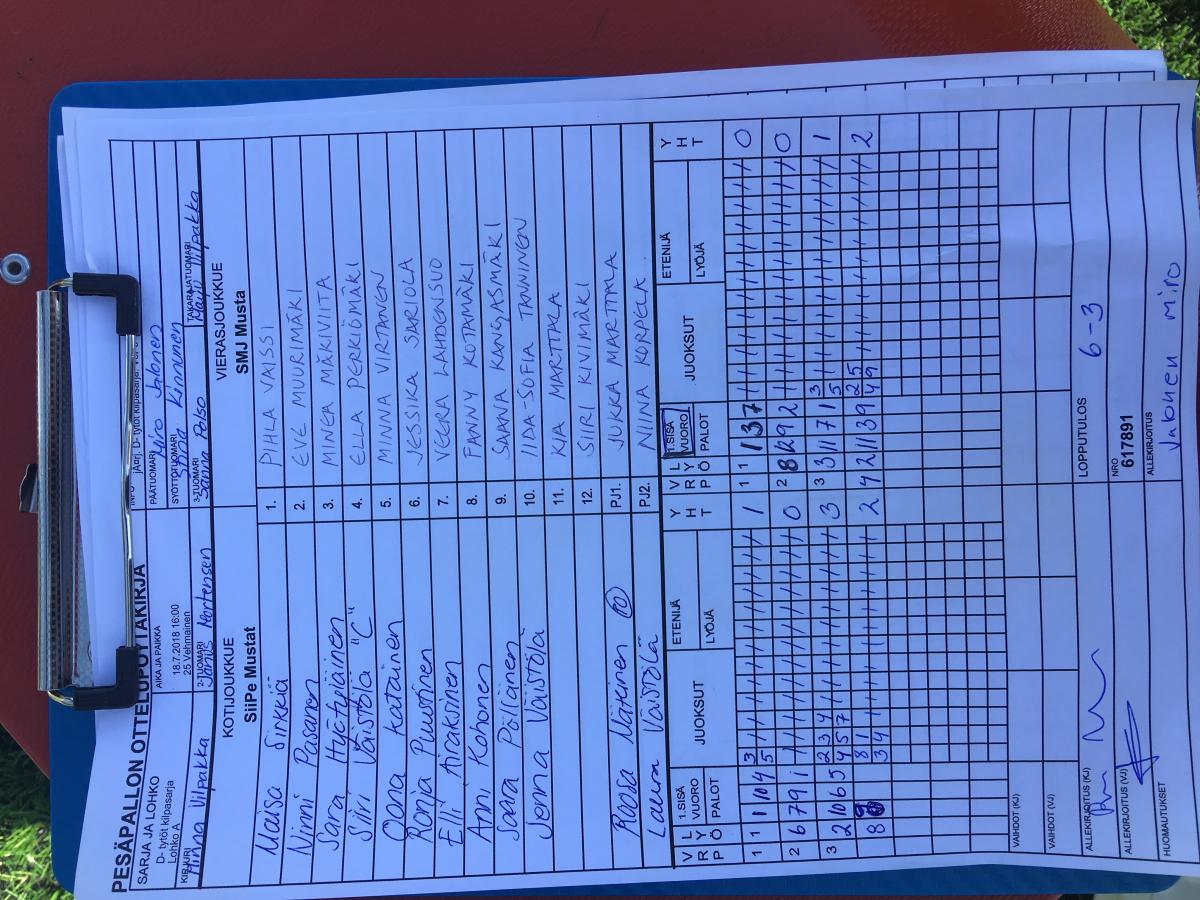 PESÄPALLON OTTELUPÖYTÄKIRJA
SARJA JA LOHKO
D- tytöt kilpasarja
Lohko A
AIKA JA PAIKKA
18.7.2018 16:00
25 Vehmainen
INFO
D- tytöt kilpasarja
PÄÄTUOMARI
Miro Jalonen
SYÖTTÖTUOMARI
Kinnunen
KIRJURI
Minna Vilpakka
2-TUOMARI
Janus Mortensen
3-TUOMARI
Sanna Polso
TAKARAJATUOMARI
Vilpakka
KOTIJOUKKUE
SiiPe Mustat
VIERASJOUKKUE
SMJ Musta
Maisa Sirkkiä 1. PIHLA VAISSI
Ninni Pasanen 2. EVE MUURIMÄKI
Sara Hyötyläinen 3. MINEA MÄKIVIITA
Siiri Väistölä "C" 4. ELLA PERKIÖMÄKI
Oona Katainen 5. MINNA VIRTANEN
Ronja Puustinen 6. JESSIKA SARJOLA
Elli Airaksinen 7. VEERA LAHDENSUO
Anni Kohonen 8. FANNY KOTAMÄKI
Saara Pöllänen 9. SAANA KANGASMÄKI
Jenna Väistölä 10. IIDA-SOFIA TAUNINEN
11. KIA MARTTALA
12. SIIRI KIVIMÄKI
Roosa Mätkinen 10 PJ1. JUKKA MARTTALA
Laura Väistölä PJ2. NIINA KORPELA
VRO LYÖ 1.SISÄ VUORO PALOT JUOKSUT ETENIJÄ LYÖJÄ YHT VRO LYÖ 1.SISÄ VUORO PALOT JUOKSUT ETENIJÄ LYÖJÄ YHT
1 1 10 4 3 5 1 1 1 1 3 7 0
2 6 7 9 1 0 2 8 12 9 2 0
3 2 10 6 5 2 3 4 4 5 7 3 3 3 11 7 1 3 5 1
8 8 1 3 4 2 4 2 11 3 9 2 5 4 9 2
VAIHDOT (KJ)
VAIHDOT (VJ)
LOPPUTULOS
6-3
ALLEKIRJOITUS (KJ)
NRO
617891
ALLEKIRJOITUS (VJ)
ALLEKIRJOITUS
Jalonen Miro
HUOMAUTUKSET